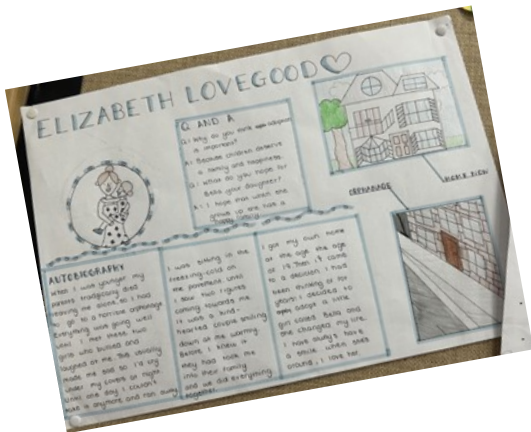 ELIZABETH LOVEGOOD
Q AND A
Q: Why do you think adoption
is important?
A: Because children deserve
a family and happiness.
Q: What do you hope for
Bella your daughter?
A: I hope that when she
grows up she has a
ORPHANAGE
AUTOBIOGRAPHY
When I was younger my
parents tragically died
leaving me alone, so I had
to go to a terrible orphanage
Everything was going well
until I met these two
girls who bullied and
laughed at me. This
made me sad so I'd cry
under my covers at night
until one day I couldn't
take it anymore and ran away
I was sitting in the
freezing-cold on
the pavement until
I saw two figures
coming towards me.
It was a kind-
hearted couple smiling
down at me warmly.
Before I knew it
they had took me
into their family
and we did everything
together.
I got my own home
at the age the age
of 18. Then it came
to a decision I had
been thinking of for
years! I decided to
adopt a little
girl called Bella and
she changed my life.
I have always have
a smile when she's
around, I love her.